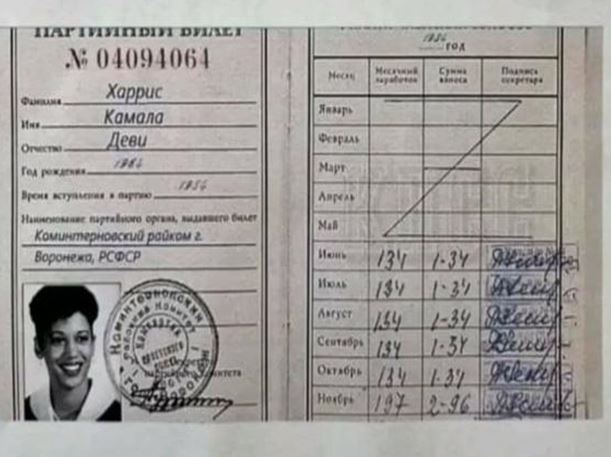 ПАРТИЙНЫЙ БИЛЕТ
№ 04094064
Фамилия Харрис
Имя Камала
Отчество Деви
Год рождения
Время вступления в партию
Наименование партийного органа, выдавшего билет
Коминтерновский райком г.
Воронежа, РСФСР
Коминтерновский
год
Месяц Месячный заработок Сумма взноса Подпись секретаря
Январь
Февраль
Март
Апрель
Май
Июнь 134 1-34
Июль 134 1-34
Август 134 1-34
Сентябрь 134 1-34
Октябрь 134 1-34
Ноябрь 197 2-96